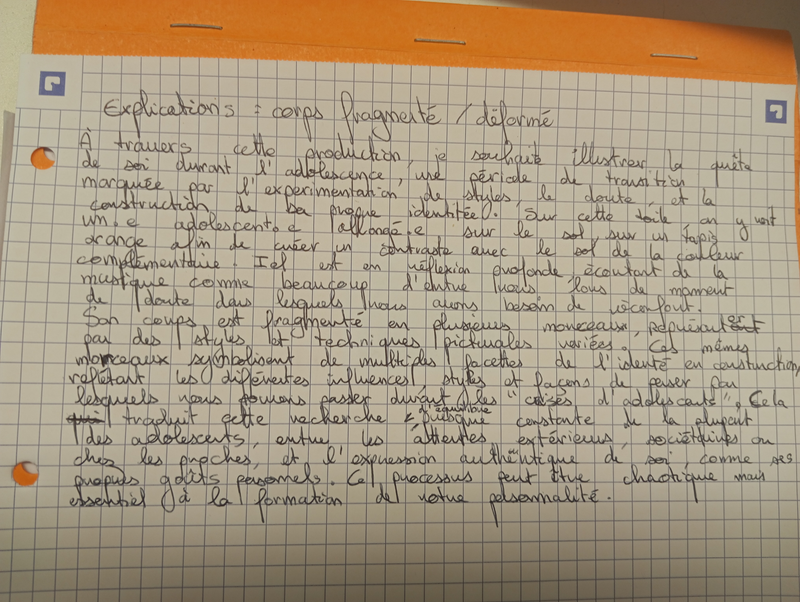 Explications : corps fragmenté / déformé
À travers cette production, je souhaite illustrer la quête
de soi durant l'adolescence, une période de transition
marquée par l'expérimentation de styles, le doute, et la
construction de sa propre identitée. Sur cette toile, on y voit
un.e adolescent.e allongé.e sur le sol sur un tapis
orange afin de créer un contraste avec le sol de la couleur
complémentaire. Iel est en réflexion profonde, écoutant de la
musique comme beaucoup d'entre nous lors de moment
de doute dans lesquels nous avons besoin de réconfort.
Son corps est fragmenté en plusieurs morceaux, représenter
par des styles et techniques picturales variées. Ces mêmes
morceaux symbolisent de multiples facettes de l'identé en construction,
reflétant les différentes influences, styles et façons de penser par
lesquels nous pouvons passer durant les "crises d'adolescents". Cela
traduit cette recherche d'équilibre presque constante de la plupart
des adolescents, entre les attentes extérieures, sociétaires ou
chez les proches, et l'expression authentique de soi, comme ses
propres goûts personnels. Ce processus peut être chaotique mais
essentiel à la formation de notre personnalité.